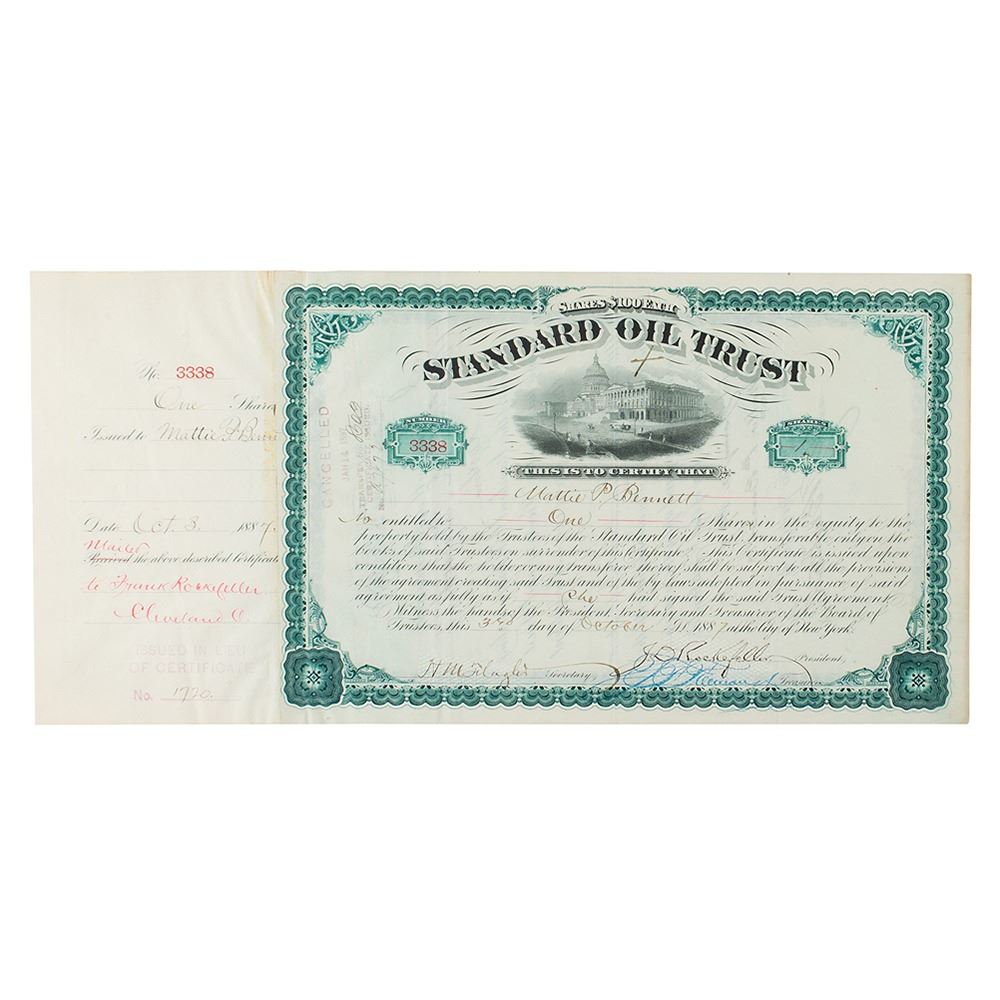 No. 3338
One Shares
Issued to Mattie P. Benn
Date Oct 3. 1887.
Mailed
Received the above described Certificate
to Frank Rockefeller
Cleveland O.
ISSUED IN LIEU
OF CERTIFICATE
No. 1770.
SHARES $100 EACH
STANDARD OIL TRUST
NUMBER
3338
SHARES
1
CANCELLED
JAN 14
THIS IS TO CERTIFY THAT
Mattie P. Bennett
is entitled to One Shares in the equity to the
property held by the Trustees of the Standard Oil Trust, transferable only on the
books of said Trustees on surrender of this Certificate. This Certificate is issued upon
condition that the holder or any transferee thereof shall be subject to all the provisions
of the agreement creating said Trust and of the by laws adopted in pursuance of said
agreement as fully as if She had signed the said Trust Agreement.
Witness the hands of the President, Secretary and Treasurer of the Board of
Trustees, this 3rd day of October A.D. 1887 at the City of New York.
H M Flagler Secretary J D Rockefeller President,
Treasurer